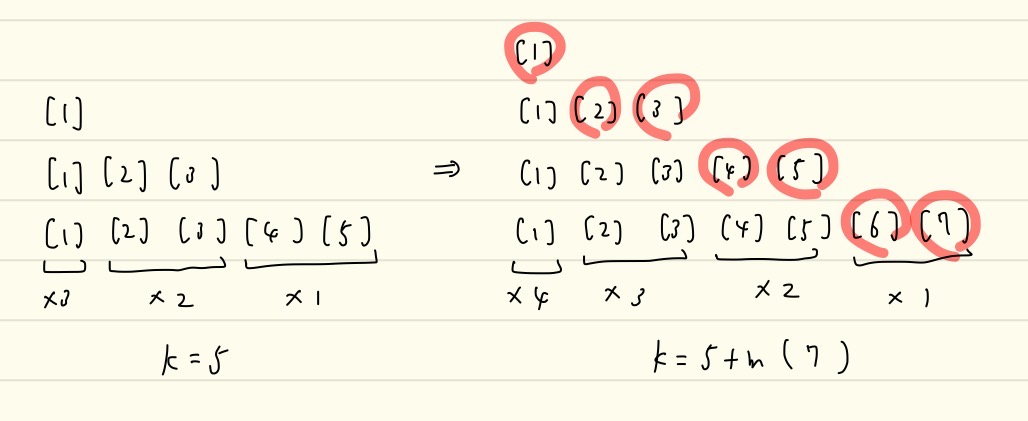 [1]
[1] [2] [3]
[1] [2] [3] [4] [5]
×3 ×2 ×1
k=5
⇒
[1]
[1] [2] [3]
[1] [2] [3] [4] [5]
[1] [2] [3] [4] [5] [6] [7]
×4 ×3 ×2 ×1
k=5+n(7)